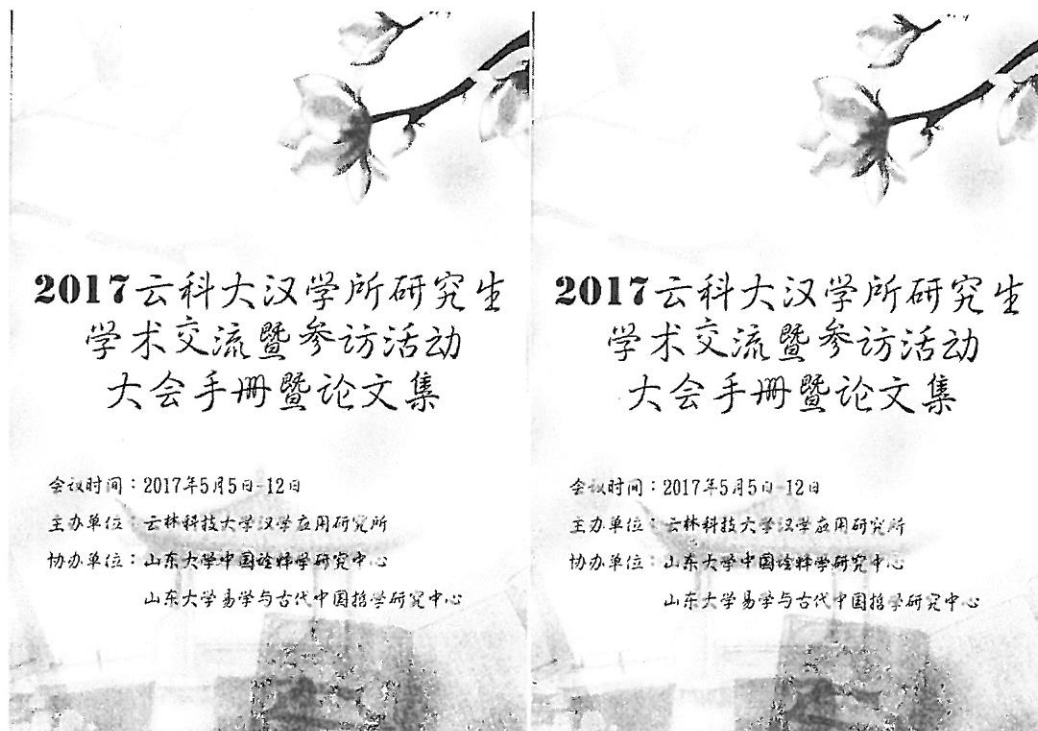 2017云科大汉学所研究生
学术交流暨参访活动
大会手册暨论文集
会议时间：2017年5月5日-12日
主办单位：云林科技大学汉学应用研究所
协办单位：山东大学中国诠释学研究中心
山东大学易学与古代中国哲学研究中心
2017云科大汉学所研究生
学术交流暨参访活动
大会手册暨论文集
会议时间：2017年5月5日-12日
主办单位：云林科技大学汉学应用研究所
协办单位：山东大学中国诠释学研究中心
山东大学易学与古代中国哲学研究中心